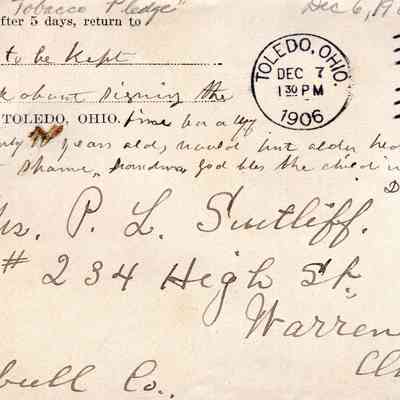 Tobacco Pledge" Dec 6, 190
fter 5 days, return to
to be kept
about signing the
TOLEDO, OHIO. time for a
years old, would but older
Shame, Grandma God bles the child
TOLEDO, OHIO.
DEC 7
1 30 PM
1906
D
rs. P. L. Sutliff.
# 234 High St.
Warren
bull Co.,